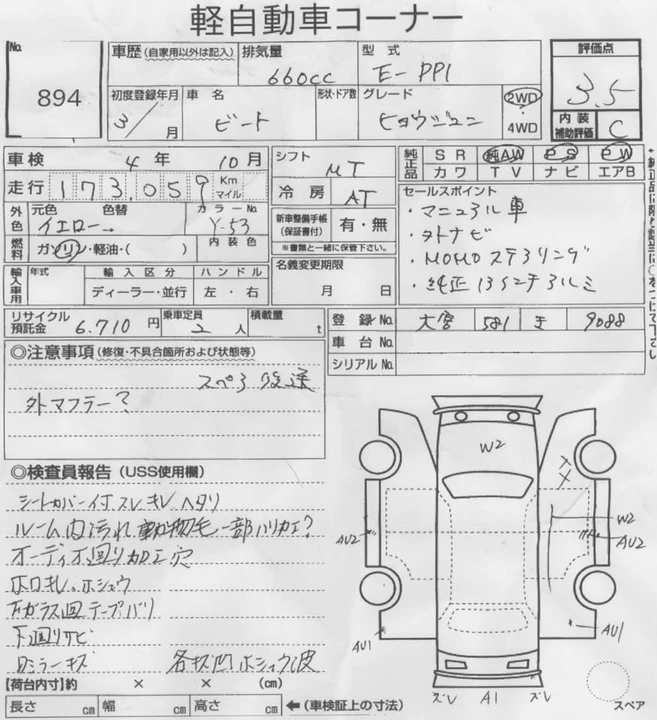 軽自動車コーナー
No. 894
車歴 (自家用以外は記入) 排気量 660cc 型式 E-PP1
初度登録年月 3/ 月 車名 ビート 形状・ドア数 グレード ヒョウジュン 2WD・4WD
評価点 3.5
内装補助評価 C
車検 4年 10月 シフト MT
走行 173,059 Km マイル 冷房 AT
純正品 SR 純AW PS PW
カワ TV ナビ エアB
外色 元色 イエロー 色替 カラーNo. Y-53
新車整備手帳(保証書付) 有・無
※書類と一緒に保管下さい。
燃料 ガソリン・軽油・( ) 内装色
名義変更期限 月 日
輸入車用 年式 輸入区分 ハンドル
ディーラー・並行 左・右
セールスポイント
・マニュアル車
・外ナビ
・MOMOステアリング
・純正13インチアルミ
リサイクル預託金 6.710円 乗車定員 2人 積載量 t
登録No. 581 き 9088
車台No.
シリアルNo.
◎注意事項 (修復・不具合箇所および状態等)
スペア後送
外マフラー?
◎検査員報告 (USS使用欄)
シートカバー付 スレ キレ ヘタリ
ルーム内汚れ 動物毛 一部ハリカエ?
オーディオ回り加工穴
ホロキレ・ホシュウ
Fガラス回テープバリ
下回りサビ
Rミラーキズ 各状凹ホシュウ波
【荷台内寸】約 × × (cm)
長さ cm 幅 cm 高さ cm ←(車検証上の寸法)
W2
W2
AU2
AU2
AU1
AU1
ズレ A1 ズレ
スペア